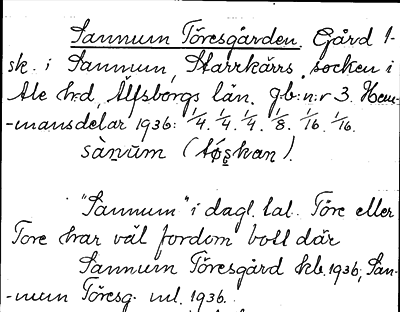 Sannum Töresgården. Gård 1-
sk. i Sannum, Starrkärrs socken i
Ale hd, Älfsborgs län. gb:n:r 3. Hem-
-mansdelar 1936: 1/4. 1/4. 1/4. 1/8. 1/16. 1/16.
sànum (tøskan).
"Sannum" i dagl. tal. Töre eller
Tore har väl fordom bott där
Sannum Töresgård kb. 1936; San-
-num Töresg. ml. 1936.